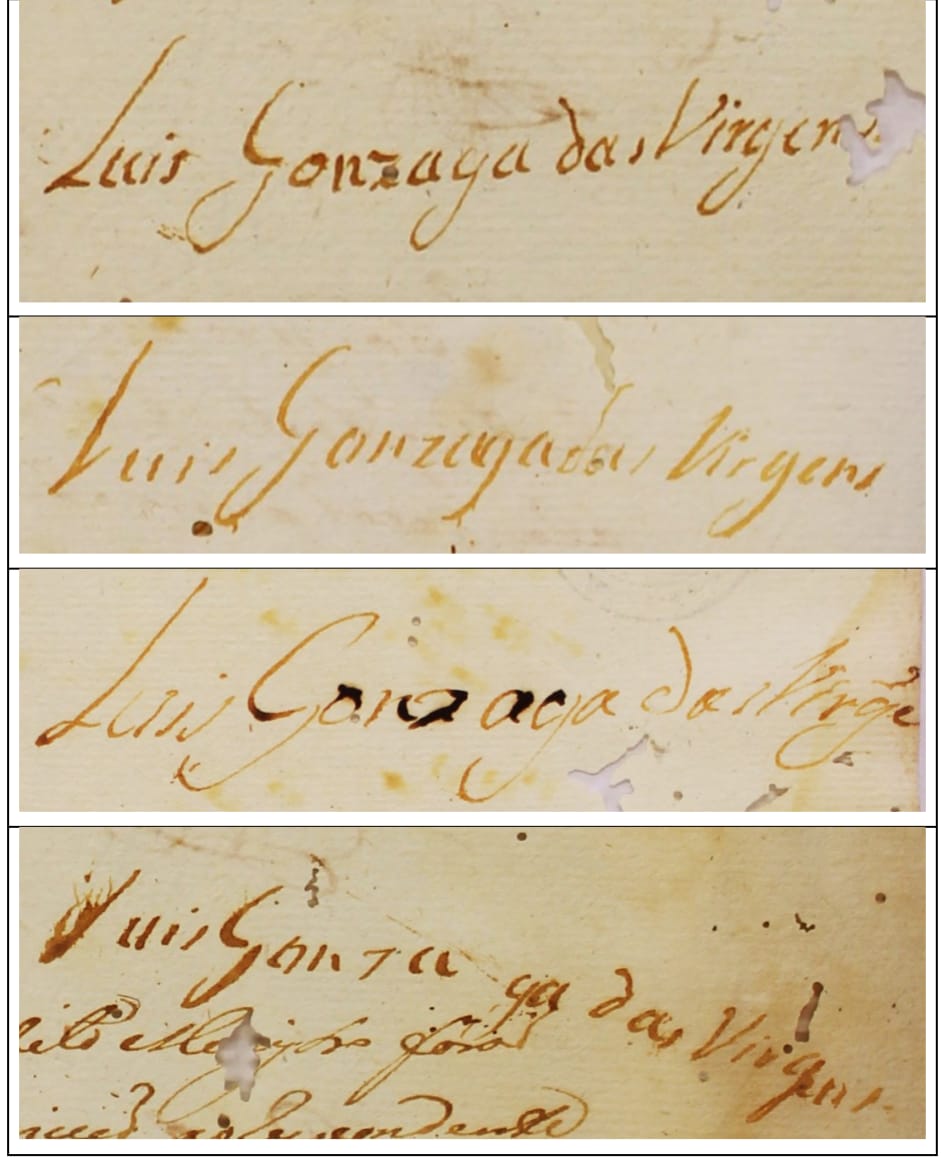 Luis Gonzaga das Virgens
Luis Gonzaga das Virgens
Luis Gonzaga das Virge
Luis Gonza
ga das Virgens